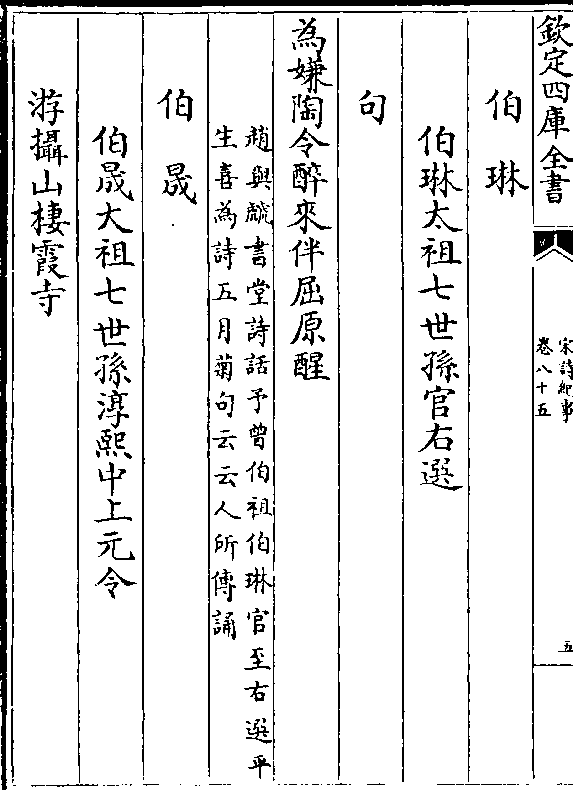 欽定四庫全書
宋詩紀事
卷八十五
五
伯琳
伯琳太祖七世孫官右選
句
為嫌陶令醉來伴屈原醒
趙與虤書堂詩話予曾伯祖伯琳官至右選平
生喜為詩五月菊句云云人所傳誦
伯晟
伯晟大祖七世孫淳熙中上元令
游攝山棲霞寺